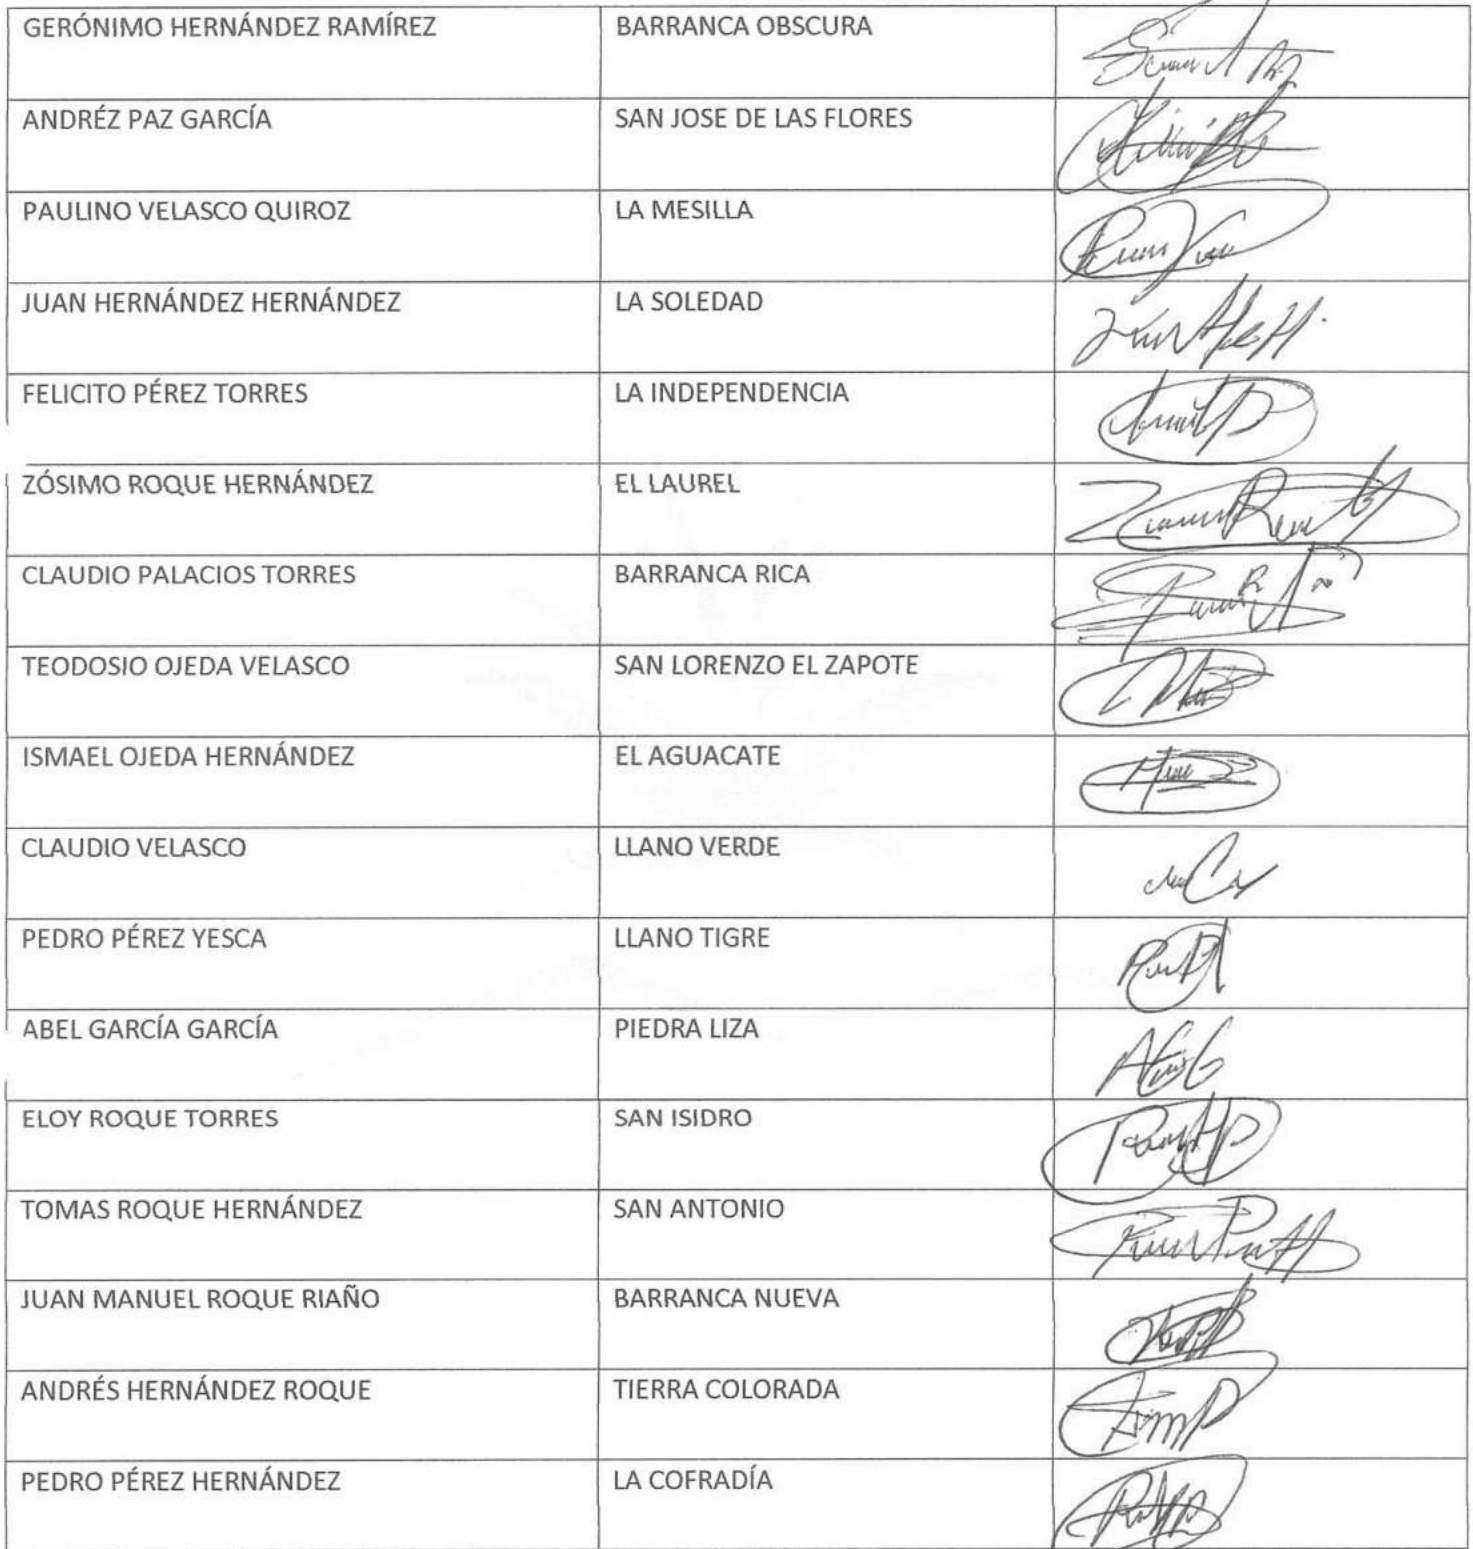 GERÓNIMO HERNÁNDEZ RAMÍREZ BARRANCA OBSCURA
ANDRÉZ PAZ GARCÍA SAN JOSE DE LAS FLORES
PAULINO VELASCO QUIROZ LA MESILLA
JUAN HERNÁNDEZ HERNÁNDEZ LA SOLEDAD
FELICITO PÉREZ TORRES LA INDEPENDENCIA
ZÓSIMO ROQUE HERNÁNDEZ EL LAUREL
CLAUDIO PALACIOS TORRES BARRANCA RICA
TEODOSIO OJEDA VELASCO SAN LORENZO EL ZAPOTE
ISMAEL OJEDA HERNÁNDEZ EL AGUACATE
CLAUDIO VELASCO LLANO VERDE
PEDRO PÉREZ YESCA LLANO TIGRE
ABEL GARCÍA GARCÍA PIEDRA LIZA
ELOY ROQUE TORRES SAN ISIDRO
TOMAS ROQUE HERNÁNDEZ SAN ANTONIO
JUAN MANUEL ROQUE RIAÑO BARRANCA NUEVA
ANDRÉS HERNÁNDEZ ROQUE TIERRA COLORADA
PEDRO PÉREZ HERNÁNDEZ LA COFRADÍA